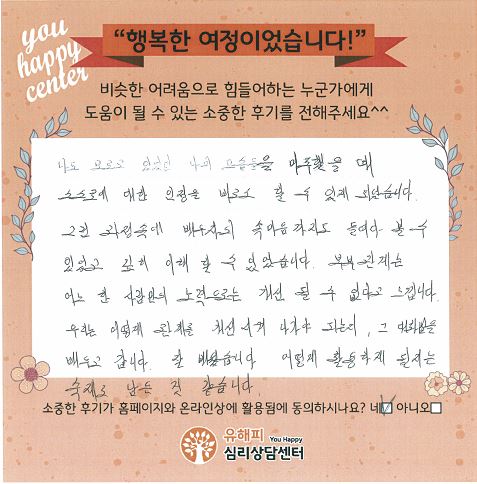 you
happy
center
“행복한 여정이었습니다!”
비슷한 어려움으로 힘들어하는 누군가에게
도움이 될 수 있는 소중한 후기를 전해주세요^^
나도 모르고 있었던 나의 모습들을 마주했을 때
스스로에 대한 인정을 비로소 할 수 있게 되었습니다.
그런 과정속에 배우자의 속마음까지도 들여다 볼 수
있었고 깊이 이해 할 수 있었습니다. 부부 관계는
어느 한 사람만의 노력으로는 개선 될 수 없다고 느낍니다.
우리는 어떻게 관계를 개선시켜 나가야 하는지, 그 방법을
배우고 갑니다. 잘 배웠습니다 어떻게 활용하게 될지는
숙제로 남은 것 같습니다.
소중한 후기가 홈페이지와 온라인상에 활용됨에 동의하시나요? 네☑ 아니오☐
유해피 You Happy
심리상담센터